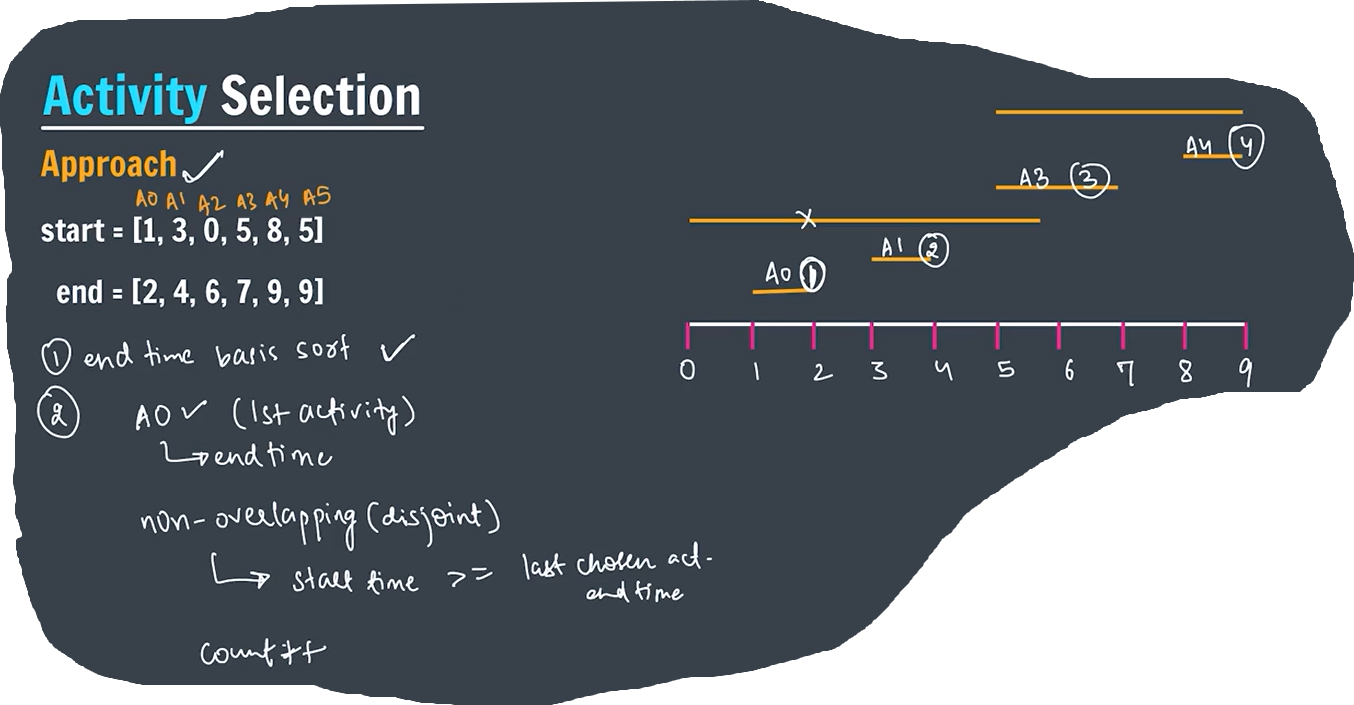 Activity Selection
Approach
A0 A1 A2 A3 A4 A5
start = [1, 3, 0, 5, 8, 5]
end = [2, 4, 6, 7, 9, 9]
① end time basis sort ✓
② A0 ✓ (1st activity)
↳ end time
non-overlapping (disjoint)
↳ start time >= last chosen act.
end time
count++
A4 ④
A3 ③
x
A1 ②
A0 ①
0 1 2 3 4 5 6 7 8 9